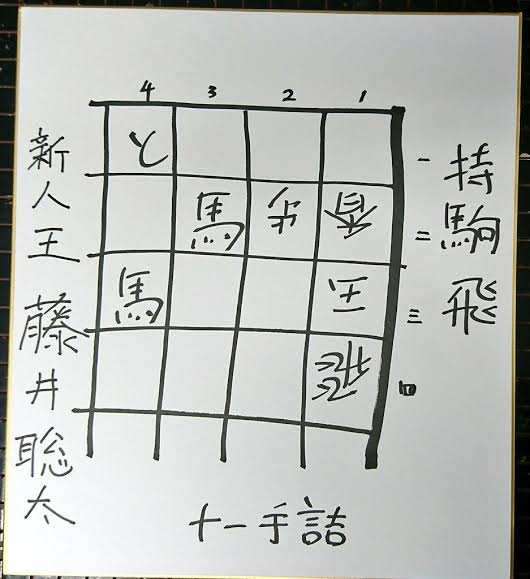 新人王 藤井聡太
4 3 2 1
と
馬 歩 香
馬 玉
飛
一
二
三
四
持駒 飛
十一手詰